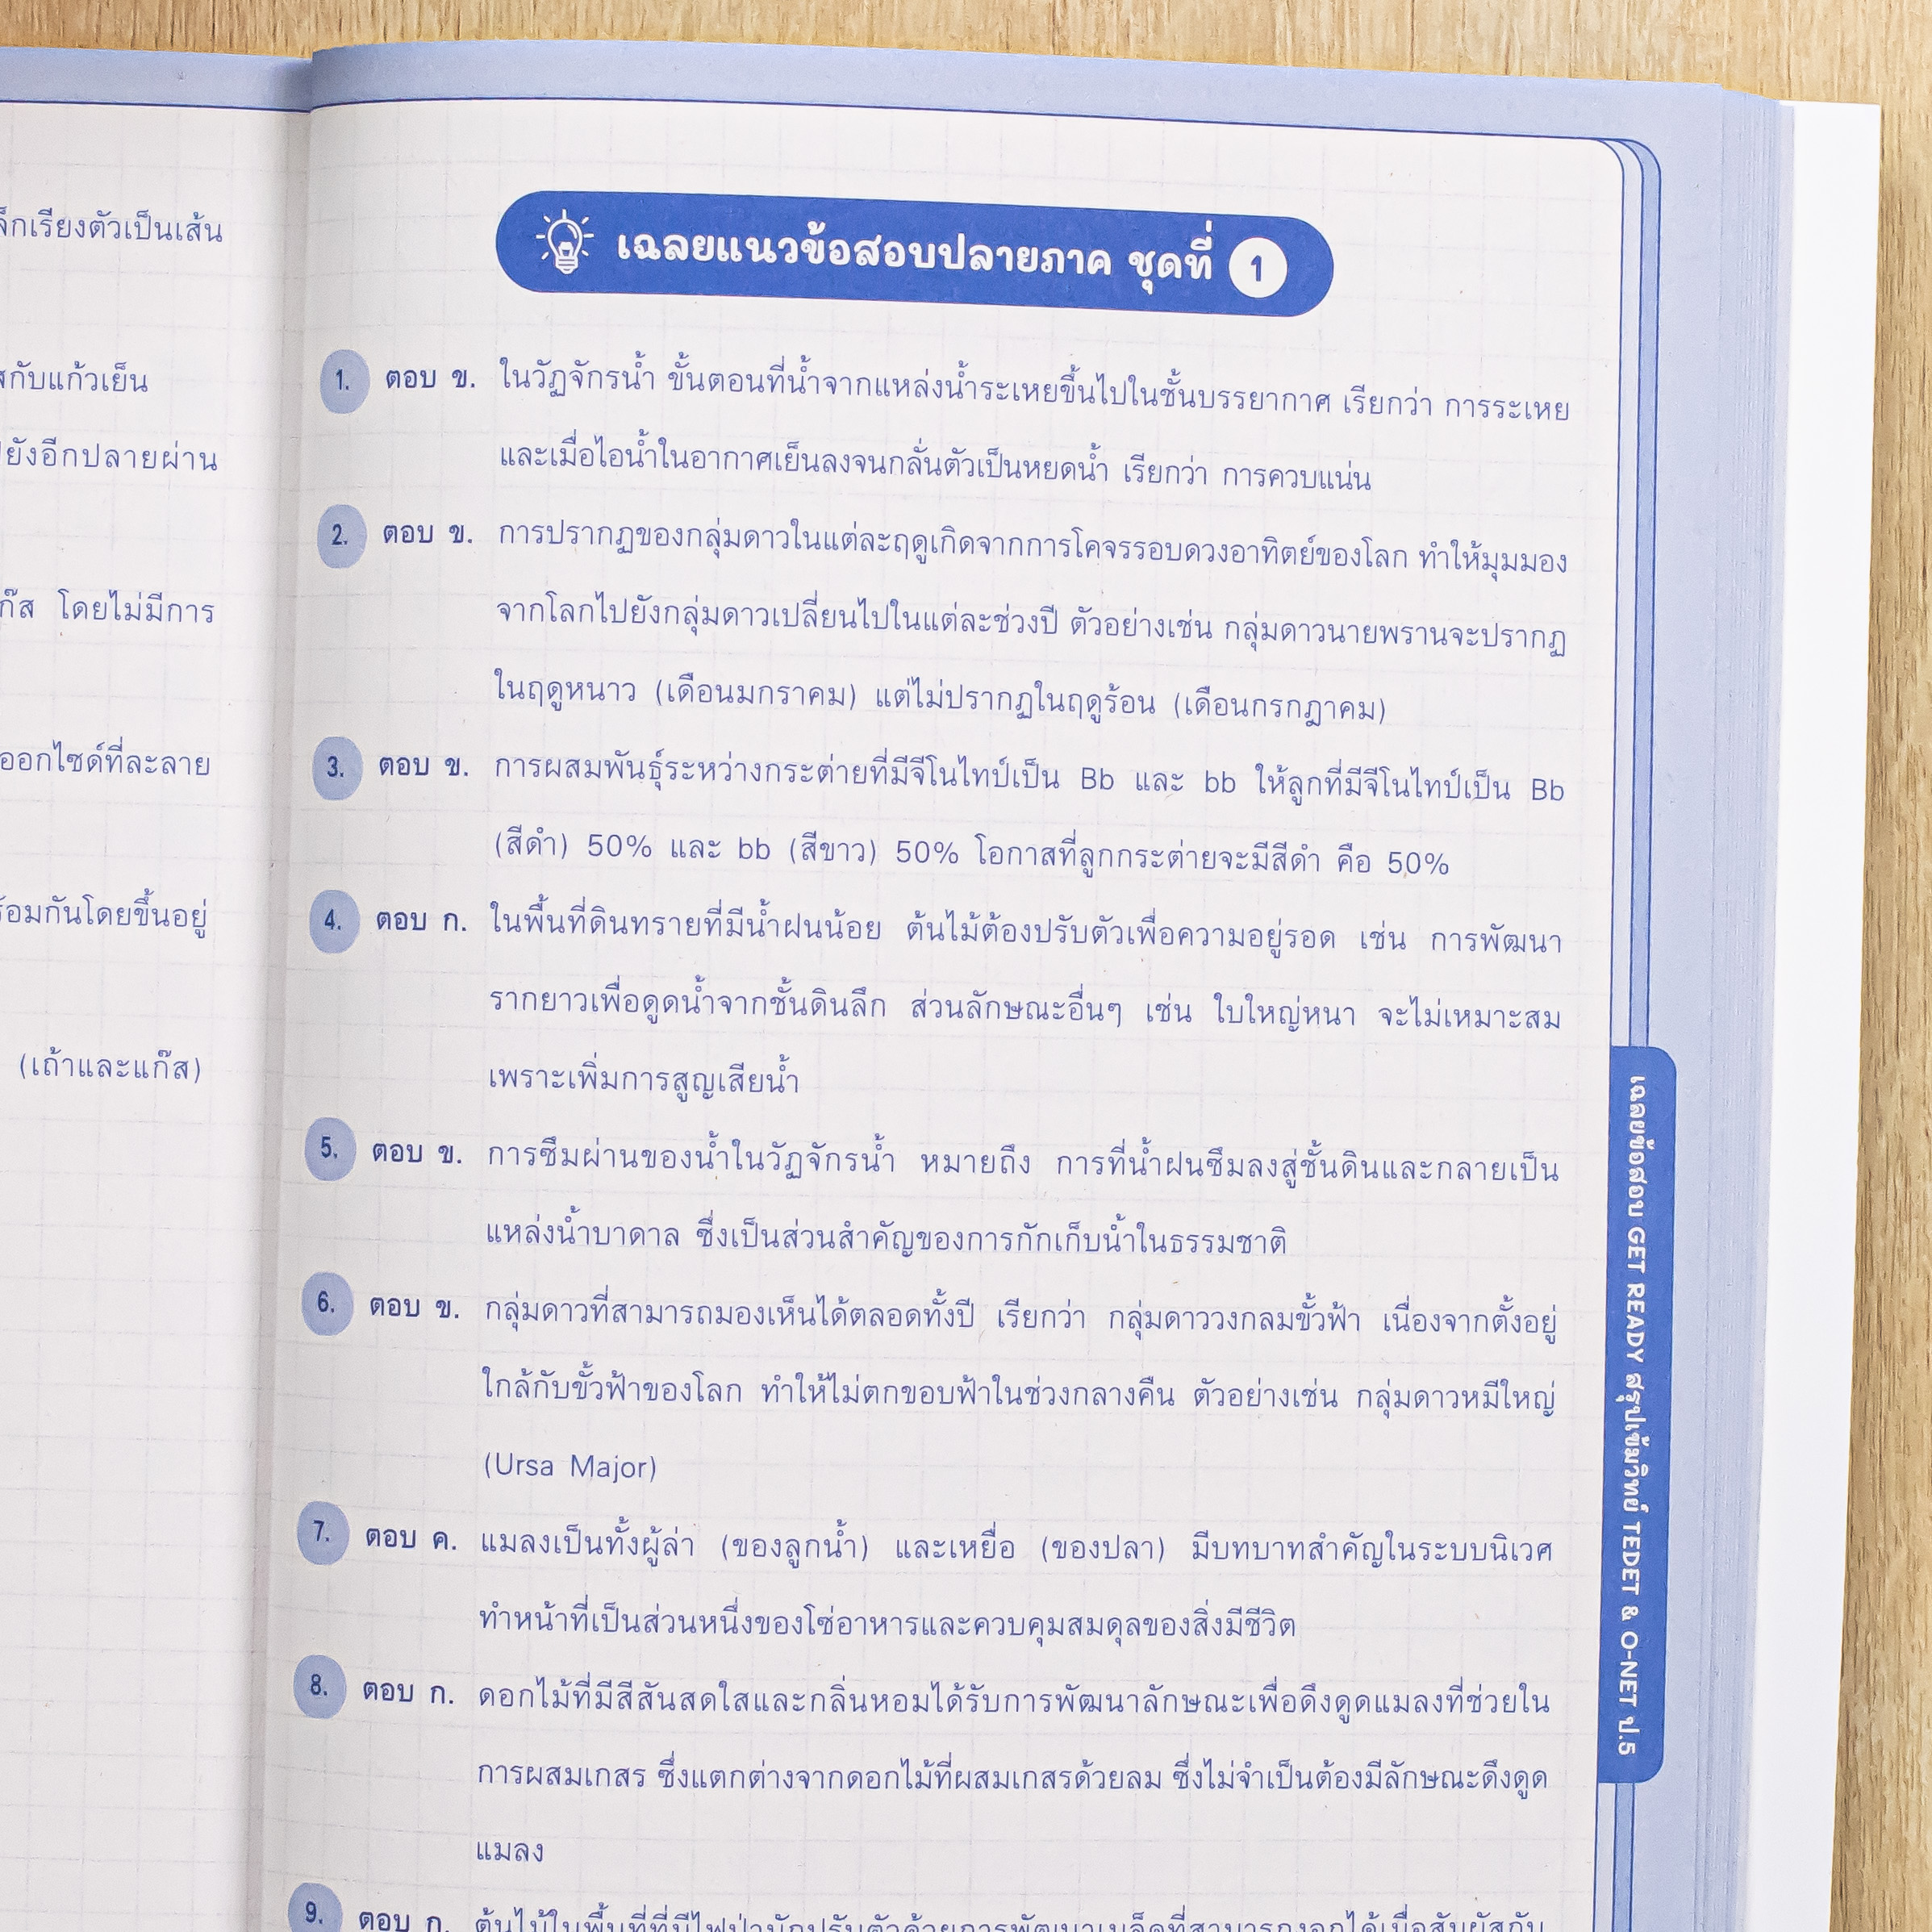 เรียงตัวเป็นเส้น
กับแก้วเย็น
ยังอีกปลายผ่าน
โดยไม่มีการ
ออกไซด์ที่ละลาย
กันโดยขึ้นอยู่
(เถ้าและแก๊ส)
เฉลยแนวข้อสอบปลายภาค ชุดที่ 1
1. ตอบ ข. ในวัฏจักรน้ำ ขั้นตอนที่น้ำจากแหล่งน้ำระเหยขึ้นไปในชั้นบรรยากาศ เรียกว่า การระเหย
และเมื่อไอน้ำในอากาศเย็นลงจนกลั่นตัวเป็นหยดน้ำ เรียกว่า การควบแน่น
2. ตอบ ข. การปรากฏของกลุ่มดาวในแต่ละฤดูเกิดจากการโคจรรอบดวงอาทิตย์ของโลก ทำให้มุมมอง
จากโลกไปยังกลุ่มดาวเปลี่ยนไปในแต่ละช่วงปี ตัวอย่างเช่น กลุ่มดาวนายพรานจะปรากฏ
ในฤดูหนาว (เดือนมกราคม) แต่ไม่ปรากฏในฤดูร้อน (เดือนกรกฎาคม)
3. ตอบ ข. การผสมพันธุ์ระหว่างกระต่ายที่มีจีโนไทป์เป็น Bb และ bb ให้ลูกที่มีจีโนไทป์เป็น Bb
(สีดำ) 50% และ bb (สีขาว) 50% โอกาสที่ลูกกระต่ายจะมีสีดำ คือ 50%
4. ตอบ ก. ในพื้นที่ดินทรายที่มีน้ำฝนน้อย ต้นไม้ต้องปรับตัวเพื่อความอยู่รอด เช่น การพัฒนา
รากยาวเพื่อดูดน้ำจากชั้นดินลึก ส่วนลักษณะอื่นๆ เช่น ใบใหญ่หนา จะไม่เหมาะสม
เพราะเพิ่มการสูญเสียน้ำ
5. ตอบ ข. การซึมผ่านของน้ำในวัฏจักรน้ำ หมายถึง การที่น้ำฝนซึมลงสู่ชั้นดินและกลายเป็น
แหล่งน้ำบาดาล ซึ่งเป็นส่วนสำคัญของการกักเก็บน้ำในธรรมชาติ
6. ตอบ ข. กลุ่มดาวที่สามารถมองเห็นได้ตลอดทั้งปี เรียกว่า กลุ่มดาววงกลมขั้วฟ้า เนื่องจากตั้งอยู่
ใกล้กับขั้วฟ้าของโลก ทำให้ไม่ตกขอบฟ้าในช่วงกลางคืน ตัวอย่างเช่น กลุ่มดาวหมีใหญ่
(Ursa Major)
7. ตอบ ค. แมลงเป็นทั้งผู้ล่า (ของลูกน้ำ) และเหยื่อ (ของปลา) มีบทบาทสำคัญในระบบนิเวศ
ทำหน้าที่เป็นส่วนหนึ่งของโซ่อาหารและควบคุมสมดุลของสิ่งมีชีวิต
8. ตอบ ก. ดอกไม้ที่มีสีสันสดใสและกลิ่นหอมได้รับการพัฒนาลักษณะเพื่อดึงดูดแมลงที่ช่วยใน
การผสมเกสร ซึ่งแตกต่างจากดอกไม้ที่ผสมเกสรด้วยลม ซึ่งไม่จำเป็นต้องมีลักษณะดึงดูด
แมลง
9. ตอบ ก. ต้นไม้ในพื้นที่ที่มีไฟป่ามักปรับตัวด้วยการพัฒนาเมล็ดที่สามารถงอกได้เมื่อสัมผัสกับ
เฉลยข้อสอบ GET READY สรุปเข้มวิทย์ TEDET & O-NET ป.5